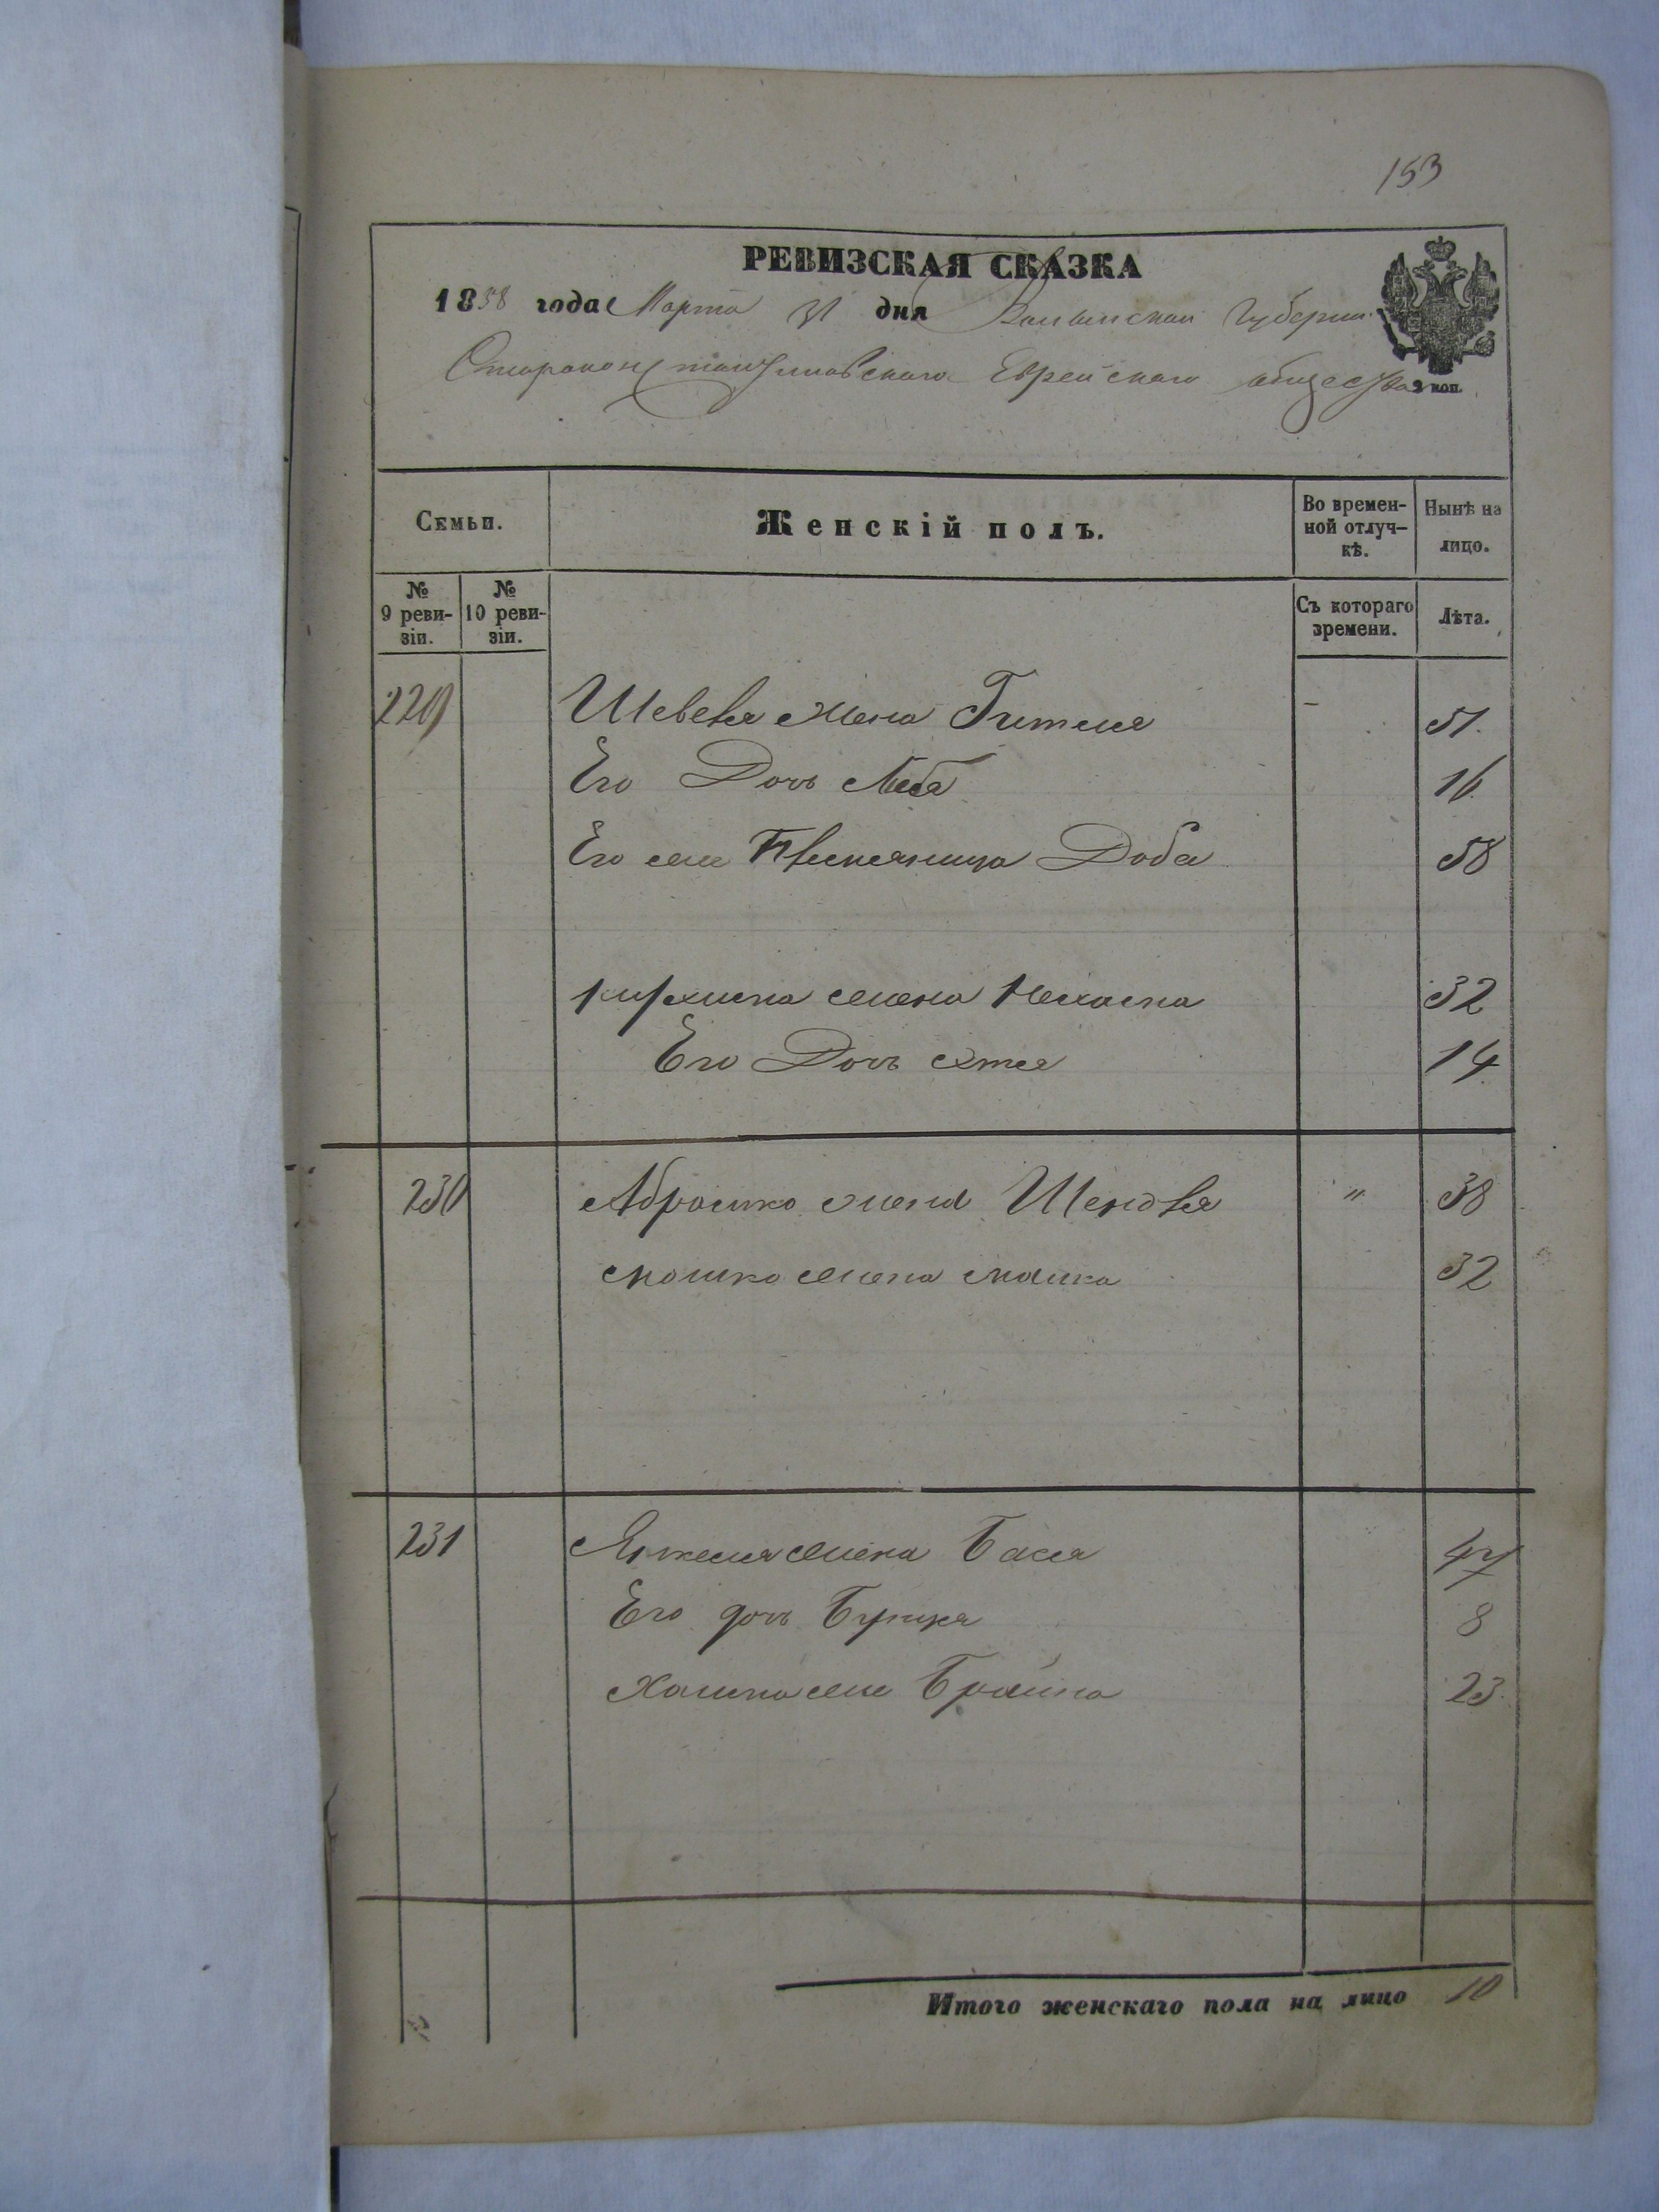 153
РЕВИЗСКАЯ СКАЗКА
1858 года Марта 31 дня Волынской Губернии
Староконстантиновскаго Еврейскаго общества
2 коп.
Семьи.
Женскій полъ.
Во времен-
ной отлуч-
кѣ.
Нынѣ на
лицо.
№
9 реви-
зіи.
№
10 реви-
зіи.
Съ котораго
времени.
Лѣта.
229 жена Гитля - 51.
Его Дочь Леба 16
Его же Племянница Доба 58
жена 32
Его Дочь 14
230 Абрамко жена Шендля " 38
Мошко жена Малка 32
231 Янкеля жена Бася 47
Его дочь 8
Брайна 23
Итого женскаго пола на лицо 10